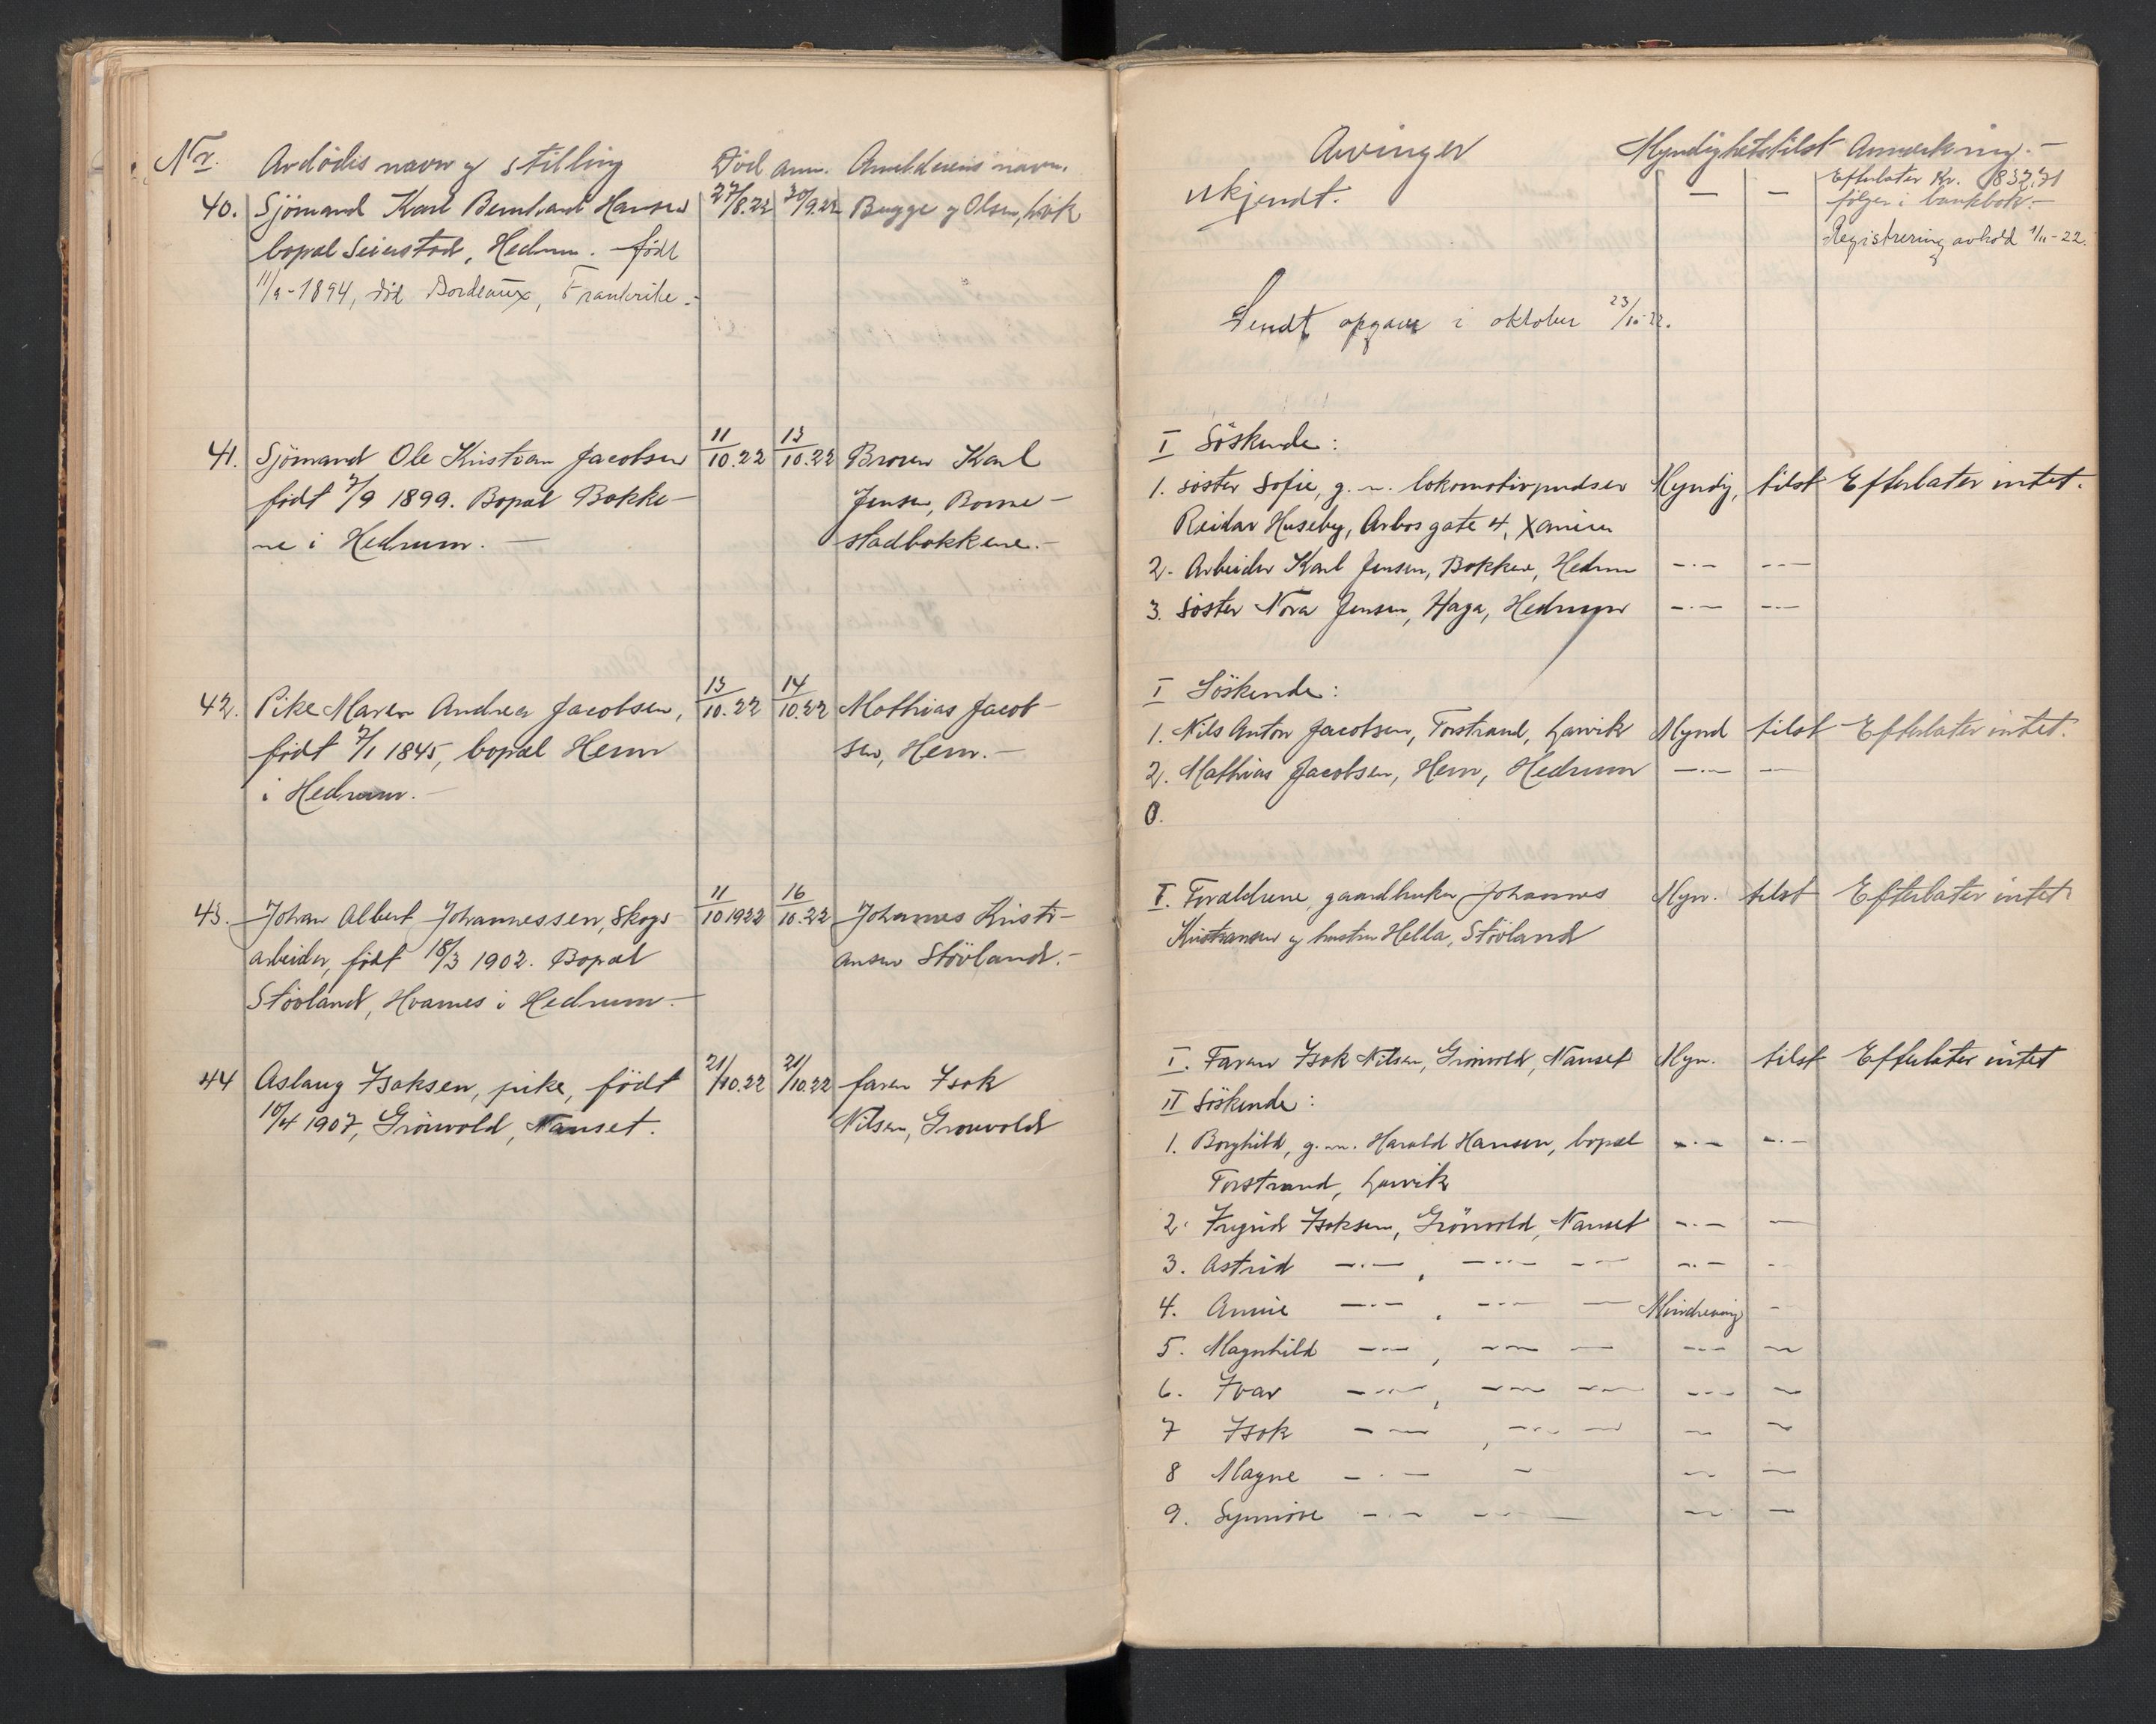 Nr. Avdødes navn og stilling Död anm. Anmelderens navn.
40. Sjömand Karl Bernhard Hansen 27/8.22 30/9.22 Bugge og Olsen, Lvik
bopæl Seierstad, Hedrum. født
11/9-1894, död Bordeaux, Frankrike.-
41. Sjömand Ole Kristian Jacobsen 11/10.22 13/10.22 Broren Karl
født 7/9 1899. Bopæl Bokke- Jensen, Bome-
ne i Hedrum. — stadbokkene.-
42. Pike Maren Andrea Jacobsen, 13/10.22 14/10.22 Mathias Jacob-
født 7/1 1845, bopæl Hem sen, Hem.-
i Hedrum.-
43. Johan Albert Johannessen, Skogs 11/10 1922 16/10.22 Johannes Kristi-
arbeider, født 18/3 1902. Bopæl ansen Stövland.-
Stövland, Hvarnes i Hedrum.-
44 Aslaug Isaksen, pike, født 21/10.22 21/10.22 faren Isak
10/4 1907, Grönvold, Nanset. Nilsen, Gronvold
Arvinger Myndighetstilst Anmerkning.-
ukjendt. — — Efterlater Kr. 1832,71
følger i bankbok.-
Registrering avhold 1/11-22.
Sendt opgave i oktober 23/10-22.
I Söskende:
1. söster Sofie, g. m. lokomotivpudser Myndig, tilst Efterlater intet.
Reidar Huseby, Arbos gate 4, Xania
2. Arbeider Karl Jensen, Bokkene, Hedrum -·- -·-
3. Söster Nora Jensen, Haga, Hedrum -·- -·-
I Söskende:
1. Nils Anton Jacobsen, Torstrand, Larvik Mynd tilst Efterlater intet.
2. Mathias Jacobsen, Hem, Hedrum -·- —
0.
I. Forældrene, gaardbruker Johannes Myn. tilst Efterlater intet
Kristiansen og hustru Hella, Stövland
I. Faren Isak Nilsen, Grönvold, Nanset Myn. tilst Efterlater intet
II Söskende:
1. Borghild, g. m. Harald Hansen, bopæl -·- -·-
Torstrand, Larvik
2. Ingrid Isaksen, Grönvold, Nanset -·- —
3. Astrid -·-, -·- -·- -·- -·-
4. Annie -·-, -·- — Mindreaarig -
5. Magnhild -·-, -·- — -·- —
6. Ivar -·-, -·- -·- -·- —
7 Isak -·-, -·- — — —
8 Magne -·- — — —
9. Synnöve -·- -·- — — —